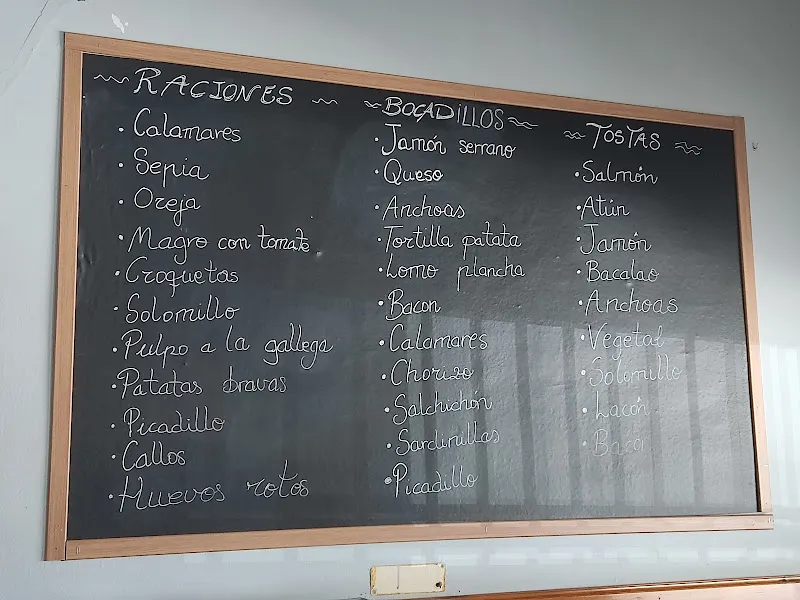 RACIONES
Calamares
Sepia
Oreja
Magro con tomate
Croquetas
Solomillo
Pulpo a la gallega
Patatas bravas
Picadillo
Callos
Huevos rotos
BOÇADILLOS
Jamón serrano
Queso
Anchoas
Tortilla patata
Lomo plancha
Bacon
Calamares
Chorizo
Salchichón
Sardinillas
Picadillo
TOSTAS
Salmón
Atún
Jamón
Bacalao
Anchoas
Vegetal
Solomillo
Lacón
Bacon